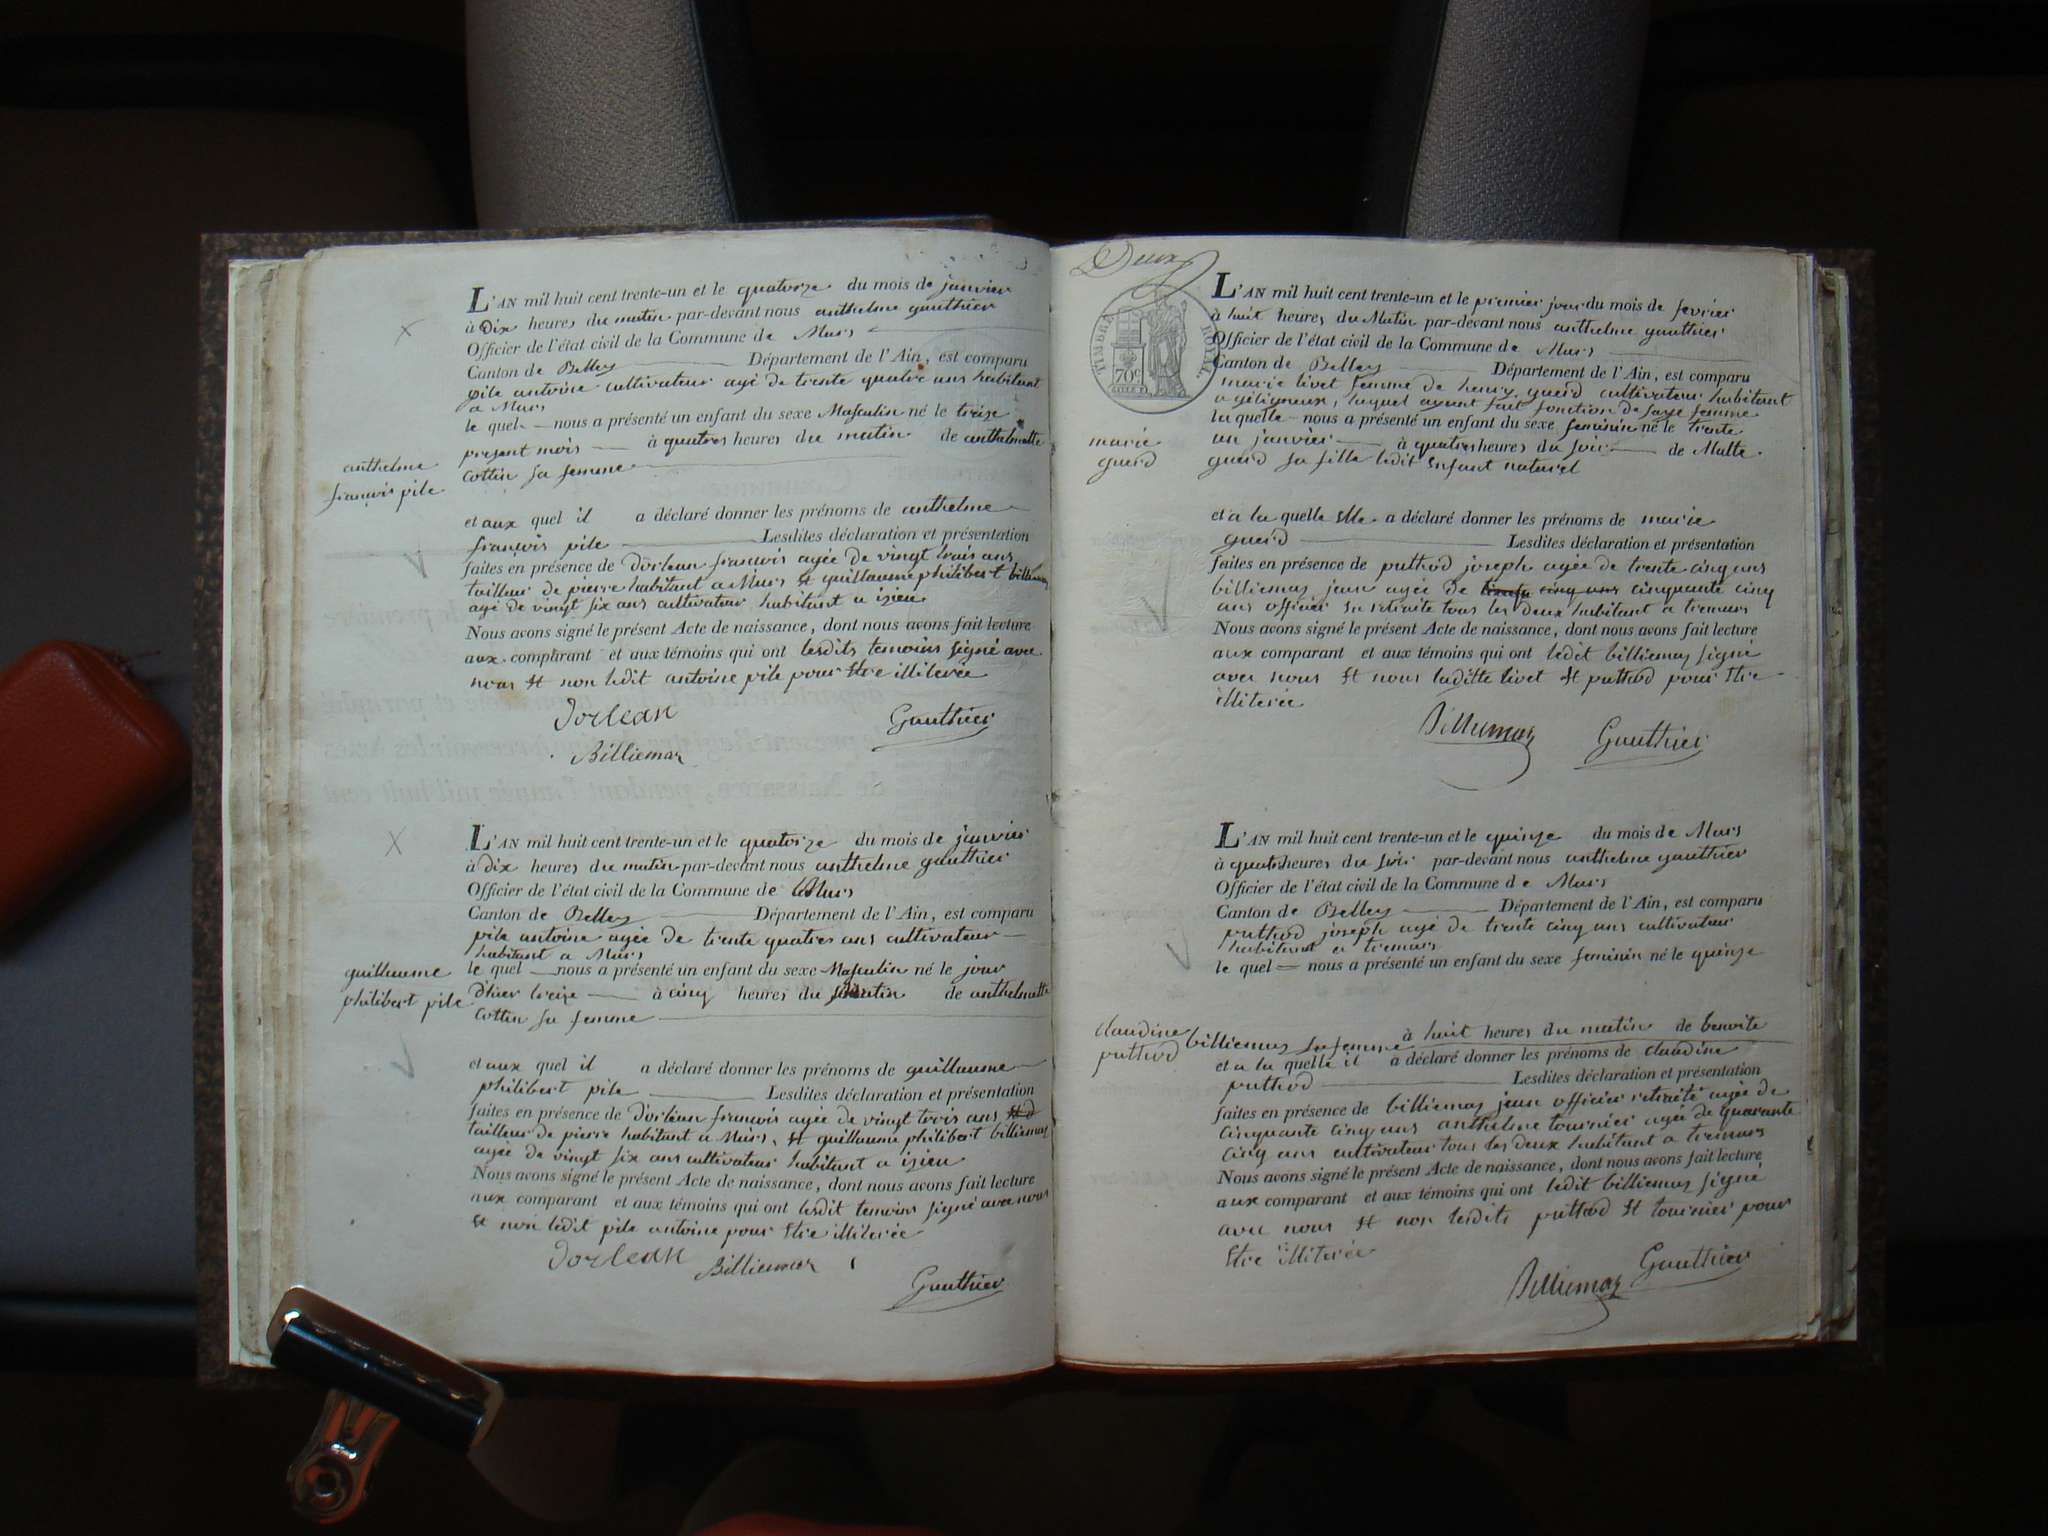 L'AN mil huit cent trente-un et le quatorze du mois de janvier
à Dix heures du matin par-devant nous anthelme gauthier
Officier de l'état civil de la Commune de Murs
Canton de Belley Département de l'Ain, est comparu
pile antoine cultivateur agé de trente quatre ans habitant
a Murs
le quel nous a présenté un enfant du sexe Masculin né le treize
present mois à quatres heures du matin de anthelmette
cottin sa femme
anthelme
françois pile
et aux quel il a déclaré donner les prénoms de anthelme
françois pile Lesdites déclaration et présentation
faites en présence de Dorlean françois agée de vingt trois ans
tailleur de pierre habitant a Murs et guillaume philibert billiemaz
agé de vingt six ans cultivateur habitant a izieu
Nous avons signé le présent Acte de naissance, dont nous avons fait lecture
aux comparant et aux témoins qui ont lesdits temoins signé avec
nous et non ledit antoine pile pour etre illiterée
Dorlean Gauthier
Billiemaz
L'AN mil huit cent trente-un et le quatorze du mois de janvier
à Dix heures du matin par-devant nous anthelme gauthier
Officier de l'état civil de la Commune de Murs
Canton de Belley Département de l'Ain, est comparu
pile antoine agée de trente quatres ans cultivateur
habitant a Murs
le quel nous a présenté un enfant du sexe Masculin né le jour
d'hier treize à cinq heures du matin de anthelmette
cottin sa femme
guillaume
philibert pile
et aux quel il a déclaré donner les prénoms de guillaume
philibert pile Lesdites déclaration et présentation
faites en présence de Dorlean françois agée de vingt trois ans
tailleur de pierre habitant a Murs, et guillaume philibert billiemaz
agée de vingt six ans cultivateur habitant a izieu
Nous avons signé le présent Acte de naissance, dont nous avons fait lecture
aux comparant et aux témoins qui ont lesdit temoins signé avec nous
et non ledit pile antoine pour etre illiterée
Dorlean Billiemaz
Gauthier
Deux
TIMBRE ROYAL
70c
L'AN mil huit cent trente-un et le premier jour du mois de fevrier
à huit heures du Matin par-devant nous anthelme gauthier
Officier de l'état civil de la Commune de Murs
Canton de Belley Département de l'Ain, est comparu
marie livet femme de henry guerd cultivateur habitant
a geligneux, laquel ayant fait fonction de sage femme
laquelle nous a présenté un enfant du sexe feminin né le trente
un janvier à quatres heures du soir de Malte
guerd sa fille ledit enfant naturel
marie
guerd
et a la quelle elle a déclaré donner les prénoms de marie
guerd Lesdites déclaration et présentation
faites en présence de puthod joseph agée de trente cinq ans
billiemaz jean agée de trente cinq ans cinquante cinq
ans officier en retraite tous les deux habitant a tremurs
Nous avons signé le présent Acte de naissance, dont nous avons fait lecture
aux comparant et aux témoins qui ont ledit billiemaz signé
avec nous et nous laditte livet et puthod pour etre
illiterée
Billiemaz Gauthier
L'AN mil huit cent trente-un et le quinze du mois de Murs
à quatre heures du soir par-devant nous anthelme gauthier
Officier de l'état civil de la Commune de Murs
Canton de Belley Département de l'Ain, est comparu
puthod joseph agé de trente cinq ans cultivateur
habitant a tremurs
le quel nous a présenté un enfant du sexe feminin né le quinze
à huit heures du matin de benoite
billiemaz sa femme
claudine
puthod
et a la quelle il a déclaré donner les prénoms de claudine
puthod Lesdites déclaration et présentation
faites en présence de billiemaz jean officier retraité agée de
cinquante cinq ans anthelme tournier agée de quarante
cinq ans cultivateur tous les deux habitant a tremurs
Nous avons signé le présent Acte de naissance, dont nous avons fait lecture
aux comparant et aux témoins qui ont ledit billiemaz signé
avec nous et non lesdits puthod et tournier pour
etre illiterée
Billiemaz Gauthier